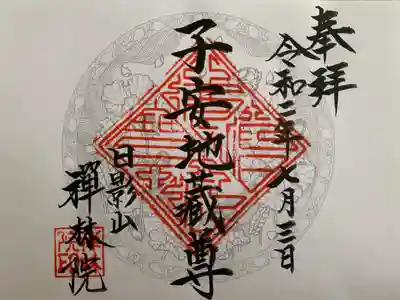 奉拝
令和二年七月三日
子安地蔵尊
日影山
禅林院